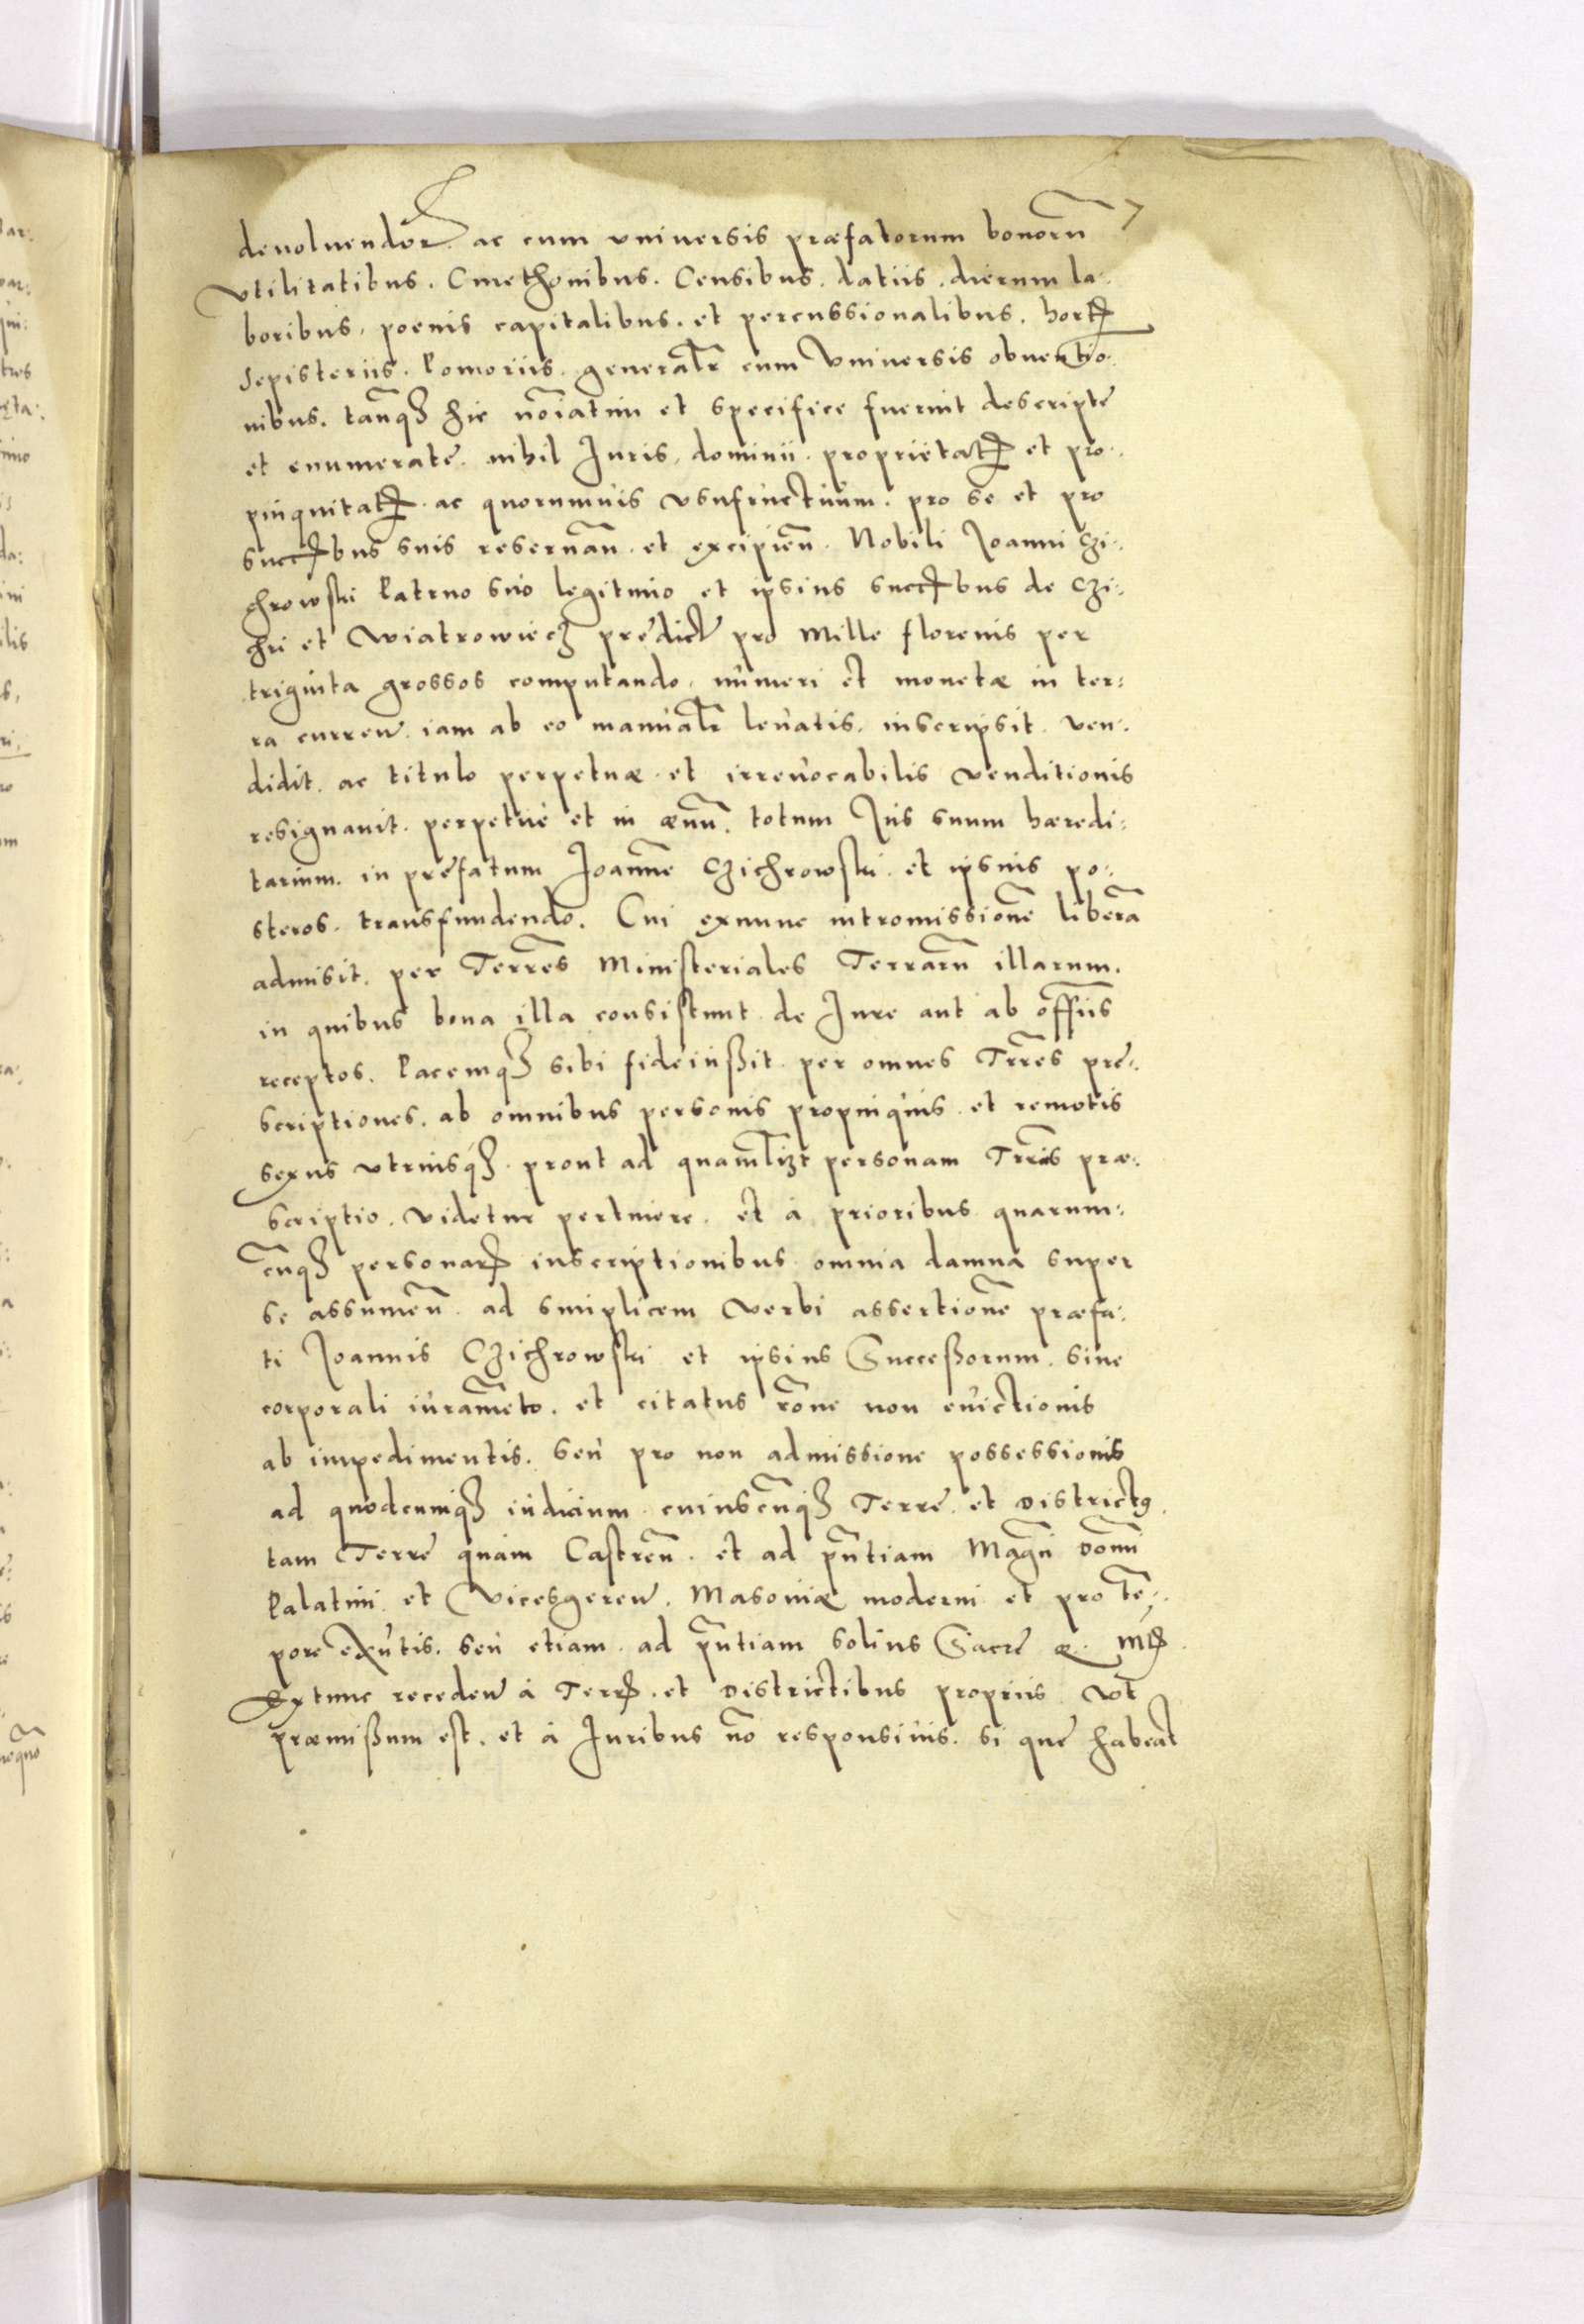 deuoluendor ac cum vniuersis præfatorum bonorũ
vtilitatibus. Cmethonibus. Censibus. datiis. dierum la:
boribus. poenis capitalibus. et percussionalibus. hort
Sepisteriis. Pomoriis. generalr cum Vniuersis obuentio:
nibus. tanq̃ hic noĩatim et specifice fuerint descripte
et enumerate. nihil Iuris, dominii. proprietat et pro:
pinquitat. ac quorumuis vsufructuum. pro se et pro
succbus suis reseruañ. et excipieñ. Nobili Joanni Czi:
chrowski Patruo suo legitimo et ipsius succbus de Czi:
chi et Wiatrowiecz predict pro Mille florenis per
triginta grossos computando, numeri et monetæ in ter:
ra curreñ. iam ab eo manualr leuatis. inscripsit. ven:
didit. ac titulo perpetuæ et irreuocabilis venditionis
resignauit. perpetue et in æuũ. totum Jus suum hæredi:
tarium. in prefatum Joannẽ Czichrowski. et ipsius po:
steros. transfundendo. Cui exnunc intromissionẽ liberã
admisit. per Terrẽs Ministeriales Terrarũ illarum.
in quibus bona illa consistunt de Jure aut ab offĩis
receptos. Pacemq̃ sibi fideiußit per omnes Trr̃es pre:
scriptiones. ab omnibus personis propinquis et remotis
sexus vtriusq̃. prout ad quamlizt personam Trr̃is præ:
scriptio. videtur pertinere. et à prioribus quarum:
cũq̃ personar inscriptionibus omnia damna super
se assumeñ. ad simplicem verbi assertionẽ præfa:
ti Joannis Czichrowski et ipsius Succeßorum. sine
corporali iuramẽto. et citatus rõne non euictionis
ab impedimentis. seu pro non admissione possessionis
ad quodcumq̃ iudicium cuiuscũq̃ Terre. et Districtꝯ.
tam Terre quàm Castreñ. et ad pñtiam Magñ Domñ
Palatini et Vicesgereñ. Masouiæ moderni et pro tẽ:
pore exñtis. seu etiam ad pñtiam solius Sacre R. Mt.
Extunc recedeñ à Terr. et Districtibus propriis vt
præmißum est. et à Juribus nõ responsiuis. si que habeãt